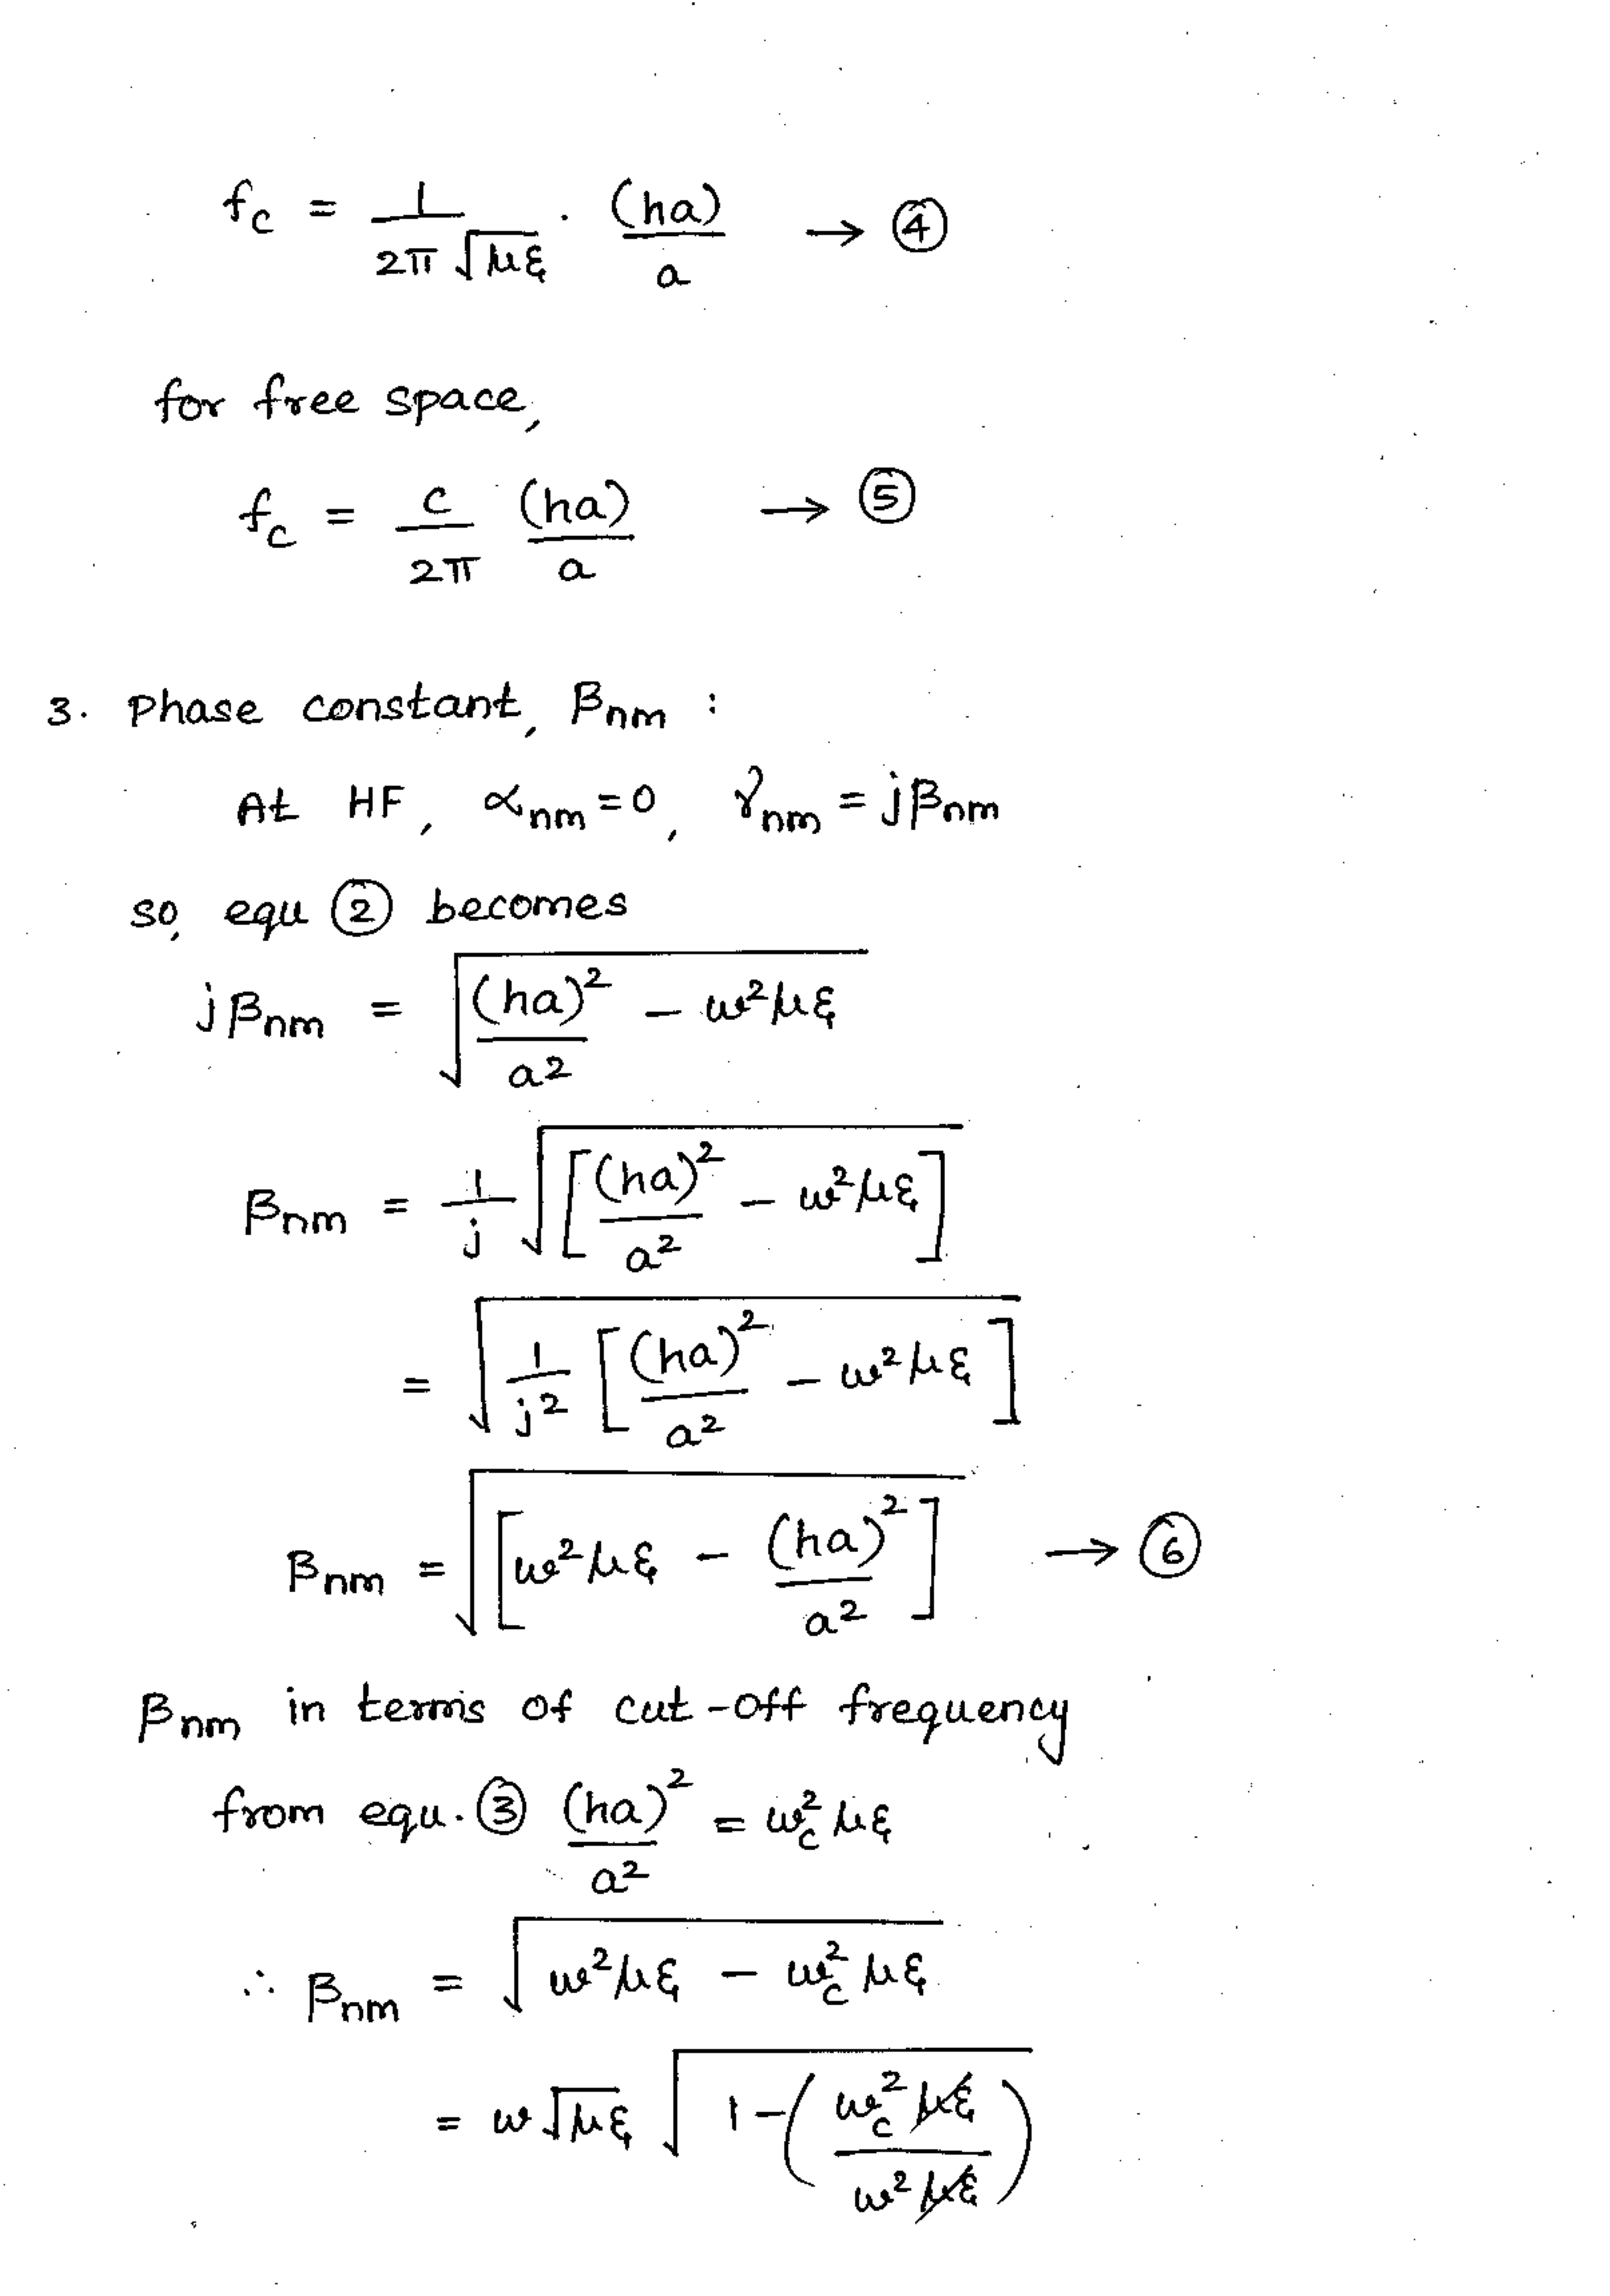 f_c = 1/(2π√(με)) · (ha)/a → ④
for free space,
f_c = c/(2π) (ha)/a → ⑤
3. Phase constant, β_nm :
At HF, α_nm = 0, γ_nm = jβ_nm
so, equ ② becomes
jβ_nm = √((ha)²/a² − ω²με)
β_nm = 1/j √[(ha)²/a² − ω²με]
= √(1/j² [(ha)²/a² − ω²με])
β_nm = √[ω²με − (ha)²/a²] → ⑥
β_nm in terms of cut-off frequency
from equ. ③ (ha)²/a² = ω_c²με
∴ β_nm = √(ω²με − ω_c²με)
= ω√(με) √(1 − (ω_c²με/ω²με))